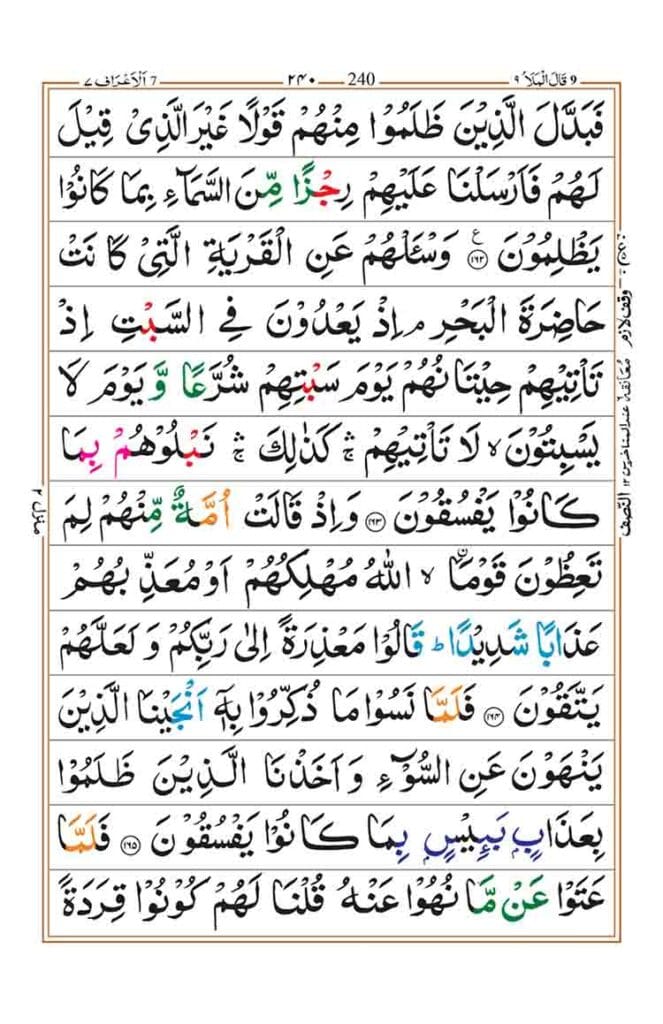 ٩ قَالَ الْمَلَاُ 9 240 ٢٤٠ 7 اَلْاَعْرَاف ٧
فَبَدَّلَ الَّذِيْنَ ظَلَمُوْا مِنْهُمْ قَوْلًا غَيْرَ الَّذِىْ قِيْلَ
لَهُمْ فَاَرْسَلْنَا عَلَيْهِمْ رِجْزًا مِّنَ السَّمَآءِ بِمَا كَانُوْا
يَظْلِمُوْنَ ۧ ﴿١٦٢﴾ وَسْئَلْهُمْ عَنِ الْقَرْيَةِ الَّتِىْ كَانَتْ
حَاضِرَةَ الْبَحْرِ ۘ اِذْ يَعْدُوْنَ فِى السَّبْتِ اِذْ
تَاْتِيْهِمْ حِيْتَانُهُمْ يَوْمَ سَبْتِهِمْ شُرَّعًا وَّيَوْمَ لَا
يَسْبِتُوْنَ ۙ لَا تَاْتِيْهِمْ ۛ كَذٰلِكَ ۛ نَبْلُوْهُمْ بِمَا
كَانُوْا يَفْسُقُوْنَ ﴿١٦٣﴾ وَاِذْ قَالَتْ اُمَّةٌ مِّنْهُمْ لِمَ
تَعِظُوْنَ قَوْمَا ۙ اللّٰهُ مُهْلِكُهُمْ اَوْ مُعَذِّبُهُمْ
عَذَابًا شَدِيْدًا ؕ قَالُوْا مَعْذِرَةً اِلٰى رَبِّكُمْ وَلَعَلَّهُمْ
يَتَّقُوْنَ ﴿١٦٤﴾ فَلَمَّا نَسُوْا مَا ذُكِّرُوْا بِهٖۤ اَنْجَيْنَا الَّذِيْنَ
يَنْهَوْنَ عَنِ السُّوْٓءِ وَاَخَذْنَا الَّذِيْنَ ظَلَمُوْا
بِعَذَابٍۭ بَئِيْسٍۭ بِمَا كَانُوْا يَفْسُقُوْنَ ﴿١٦٥﴾ فَلَمَّا
عَتَوْا عَنْ مَّا نُهُوْا عَنْهُ قُلْنَا لَهُمْ كُوْنُوْا قِرَدَةً
وقف لازم
معانقة عند المتاخرين ١٢
النصف
منزل ٢